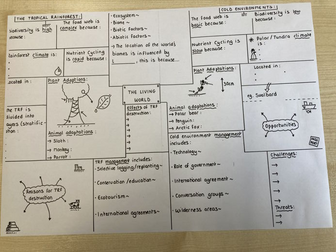 THE TROPICAL RAINFOREST:
Biodiversity is high
because:
The food web is
complex because:
Rainforest climate is:
Nutrient Cycling
is rapid because:
• Ecosystem -
• Biome -
• Biotic factors -
• Abiotic factors -
→ The location of the world's
biomes is influenced by
, this is because...
COLD ENVIRONMENTS:
The food web is
basic because:
Biodiversity is low
because:
Nutrient Cycling is
slow because:
Polar / Tundra climate
is:
Located in:
Plant Adaptations:
The TRF is
divided into
layers (stratification
Animal adaptations
→ Sloth:
→ Monkey:
→ Parrot:
THE LIVING
WORLD
Effects of TRF
destruction:
Plant Adaptations:
Located in:
eg. Svalbard
Animal adaptations
→ Polar bear:
→ Penguin:
→ Arctic fox:
Opportunities
Reasons for TRF
destruction
TRF management includes:
- Selective logging / replanting
- Conservation / education
- Ecotourism
- International agreements
Cold environment management
includes:
- Technology -
- Role of government -
- International agreement -
- Conversation groups -
- Wilderness areas -
Challenges:
→
→
→
→
Threats:
→
→